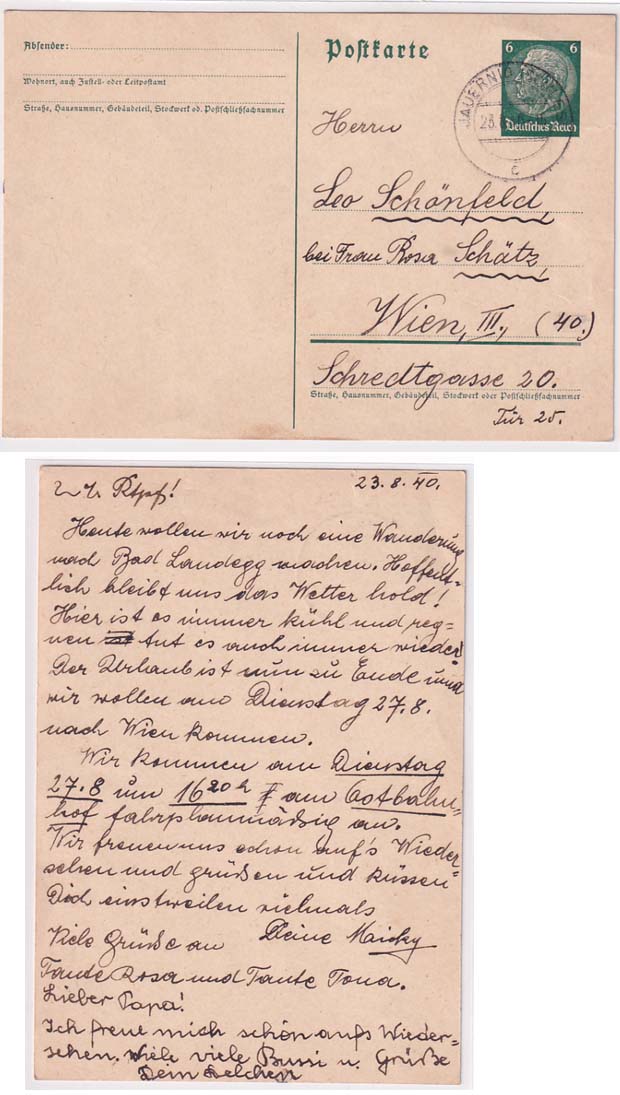 Absender:
Wohnort, auch Zustell- oder Leitpostamt
Straße, Hausnummer, Gebäudeteil, Stockwerk od. Postschließfachnummer
Postkarte
6 6
Deutsches Reich
JAUERNIG
c
Herrn
Leo Schönfeld
bei Frau Rosa Schätz
Wien, III., (40.)
Schredtgasse 20.
Straße, Hausnummer, Gebäudeteil, Stockwerk oder Postschließfachnummer
Tür 25.
23.8.40.
Heute wollen wir noch eine Wanderung
nach Bad Landegg machen. Hoffent-
lich bleibt uns das Wetter hold!
Hier ist es immer kühl und reg-
nen tut es auch immer wieder.
Der Urlaub ist nun zu Ende und
wir wollen am Dienstag 27.8.
nach Wien kommen.
Wir kommen am Dienstag
27.8 um 16 20 h am Ostbahn-
hof fahrplanmäßig an.
Wir freuen uns schon auf's Wieder-
sehen und grüßen und küssen
Dich einstweilen vielmals
Viele Grüße an Deine Maicky
Tante Rosa und Tante Tona.
Lieber Papa!
Ich freue mich schon aufs Wieder-
sehen. Viele viele Bussi u. Grüße
Dein